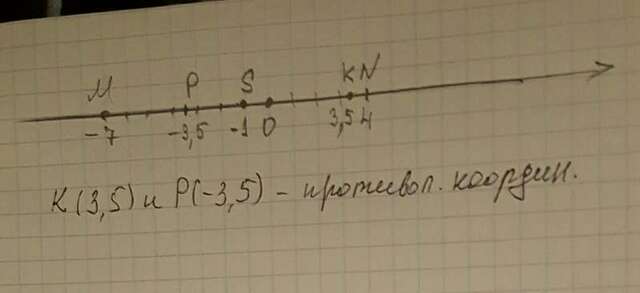 М Р S К N
-7 -3,5 -1 0 3,5 4
К(3,5) и Р(-3,5) - противоп. координ.